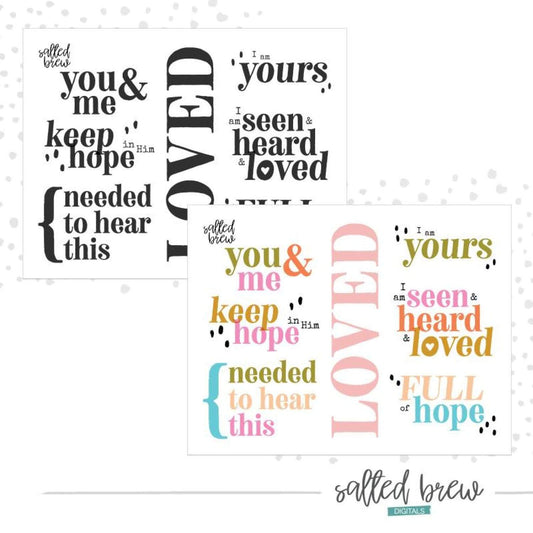 salted
brew
you &
me
keep
hope in Him
{ needed
to hear
this
LOVED
I am
yours
I
am seen &
heard
& loved
FULL
salted
brew
you &
me
keep
hope in Him
{ needed
to hear
this
LOVED
I am
yours
I
am seen &
heard
& loved
FULL
of hope
salted brew
DIGITALS